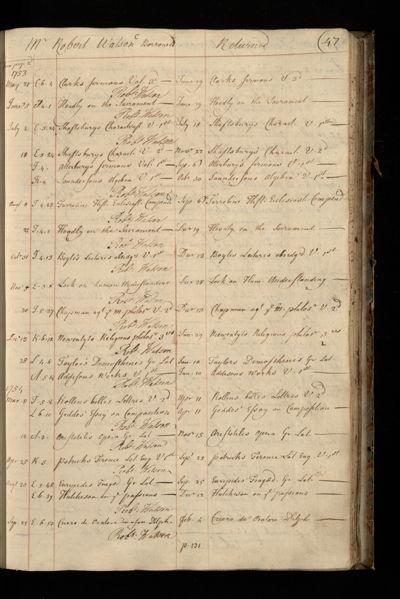 Mr Robert Watson Borrowed Returned 47
1753
May 21 C.6.2 Clarks sermons Vol 3d June 19 Clarks sermons V 3d
Robt Watson
June Hoadly on the Sacrament June 19 Hoadly on the Sacrament
Robt Watson
July 2 Shaftsburys Characts V 1st July 18 Shaftsburys Charact. V 1st
Robt Watson
18 E.5.24 Shaftsburys Charact V 2d Novr 22 Shaftsburys Charact V 2d
Atterburys sermons Vol 1st Sep. 6 Atterburys sermons V 1st
Saundersons Algebra V 1st Oct 30 Saundersons Algebra V 1st
Robt Watson
Augt Turretins Hist. Ecclesiast Compend Sepr Turretins Hist. Ecclesiast Compend
Robt Watson
Hoadly on the Sacrament Hoadly on the Sacrament
Robt Watson
Octr Boyles Lectures Abridgd V 1st Decr 13 Boyles Lectures abridgd V 1st
Robt Watson
Novr Lock on human Understanding Lock on Hum. Understanding
Robt Watson
30 Chapman agt ye M. philosr V 2d Decr 13 Chapman agt ye M. philosr V 2d
Robt Watson
Decr 13 K.6.12 Newentyts Religious philosr 3d Vol Newentyts Religious philosr 3
Robt Watson
28 Taylors Demosthenes Gr Lat Jan. 10 Taylors Demosthenes Gr Lat
Addisons Works V 1st Jan. 10 Addisons Works V. 1st
1754 Robt Watson
Mar 8 Rollins belles Lettres V 2d Apr 11 Rollins belles Lettres V 2d
L.6.10 Geddes Essay on Composition Apr 11 Geddes Essay on Composition
Robt Watson
12 Aristotelis opera Gr Lat Novr 15 Aristotelis opera Gr. Lat
Robt Watson
Apr 25 K.5. patricks Terence Lat Eng V 1st Sepr 28 patricks Terence Lat Eng. V 1st
Robt Watson
Augt 20 Euripides Traged Gr Lat Sep. 25 Euripides Traged. Gr Lat
E.6.39 Hutcheson on ye passions Decr 12 Hutcheson on ye passions
Robt Watson
Sep. 25 Cicero de Oratore in usum Delph. Feb. 4 Cicero de Oratore Delph
Robt Watson
p. 131